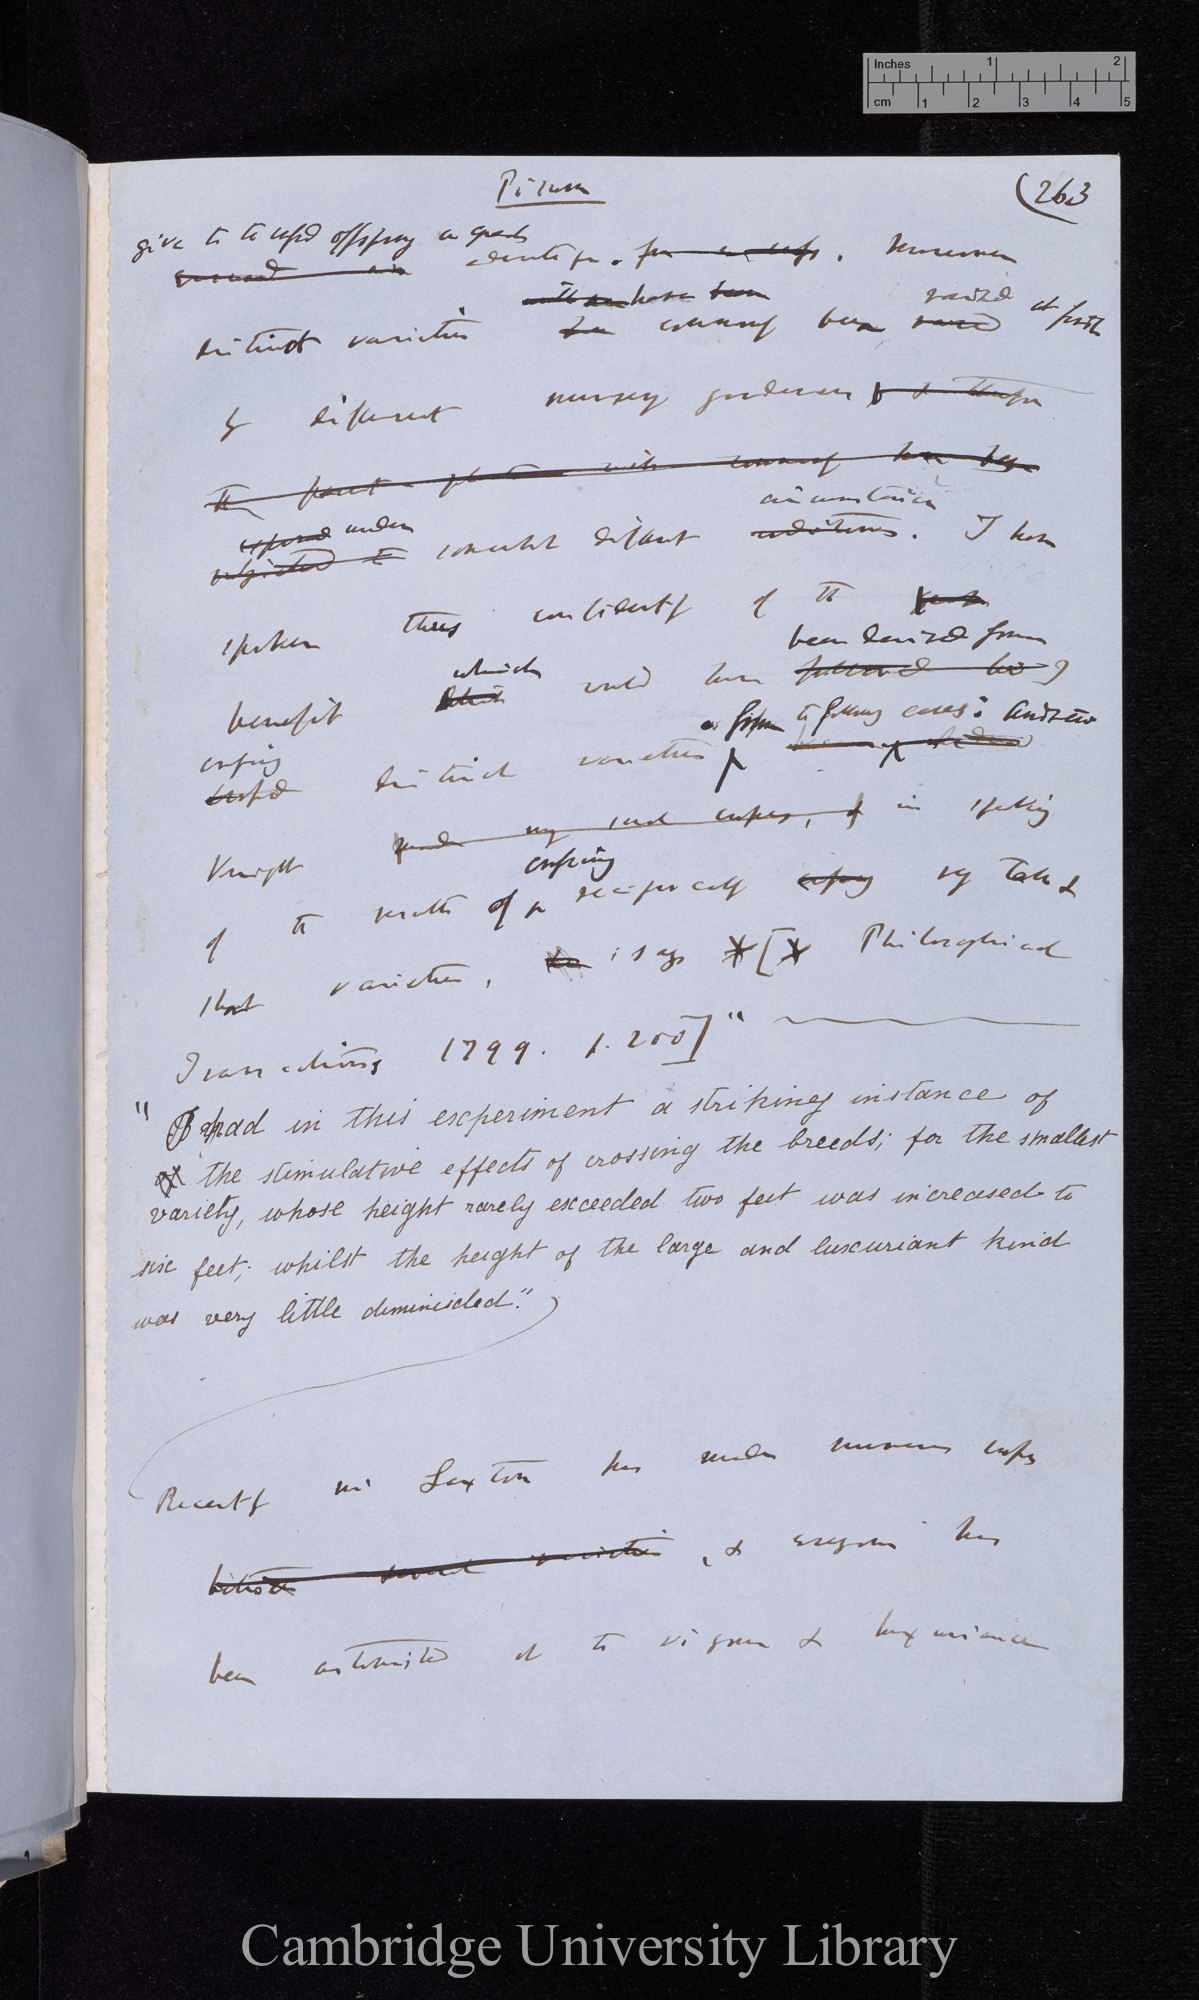 Inches 1 2
cm 1 2 3 4 5
Pisum
(263
give to the crossed offspring a great
advantage. Moreover
have raised at first
distinct varieties commonly been
by different nursery gardeners
the parent-plants will commonly have been
under circumstances
subjected to somewhat different conditions. I have
spoken thus confidently of the
been derived from
which
benefit would have followed
crossing the following cases: Andrew
crossed distinct varieties
Knight made in speaking
crossing
of the results of reciprocally crossing tall &
short varieties, says *[* Philosophical
Transactions 1799. p. 200]"
" I had in this experiment a striking instance of
of the stimulative effects of crossing the breeds; for the smallest
variety, whose height rarely exceeded two feet was increased to
six feet; whilst the height of the large and luxuriant kind
was very little diminished."
Recently Mr Laxton has made numerous crosses
between several varieties, & everyone has
been astonished at the vigour & luxuriance
Cambridge University Library